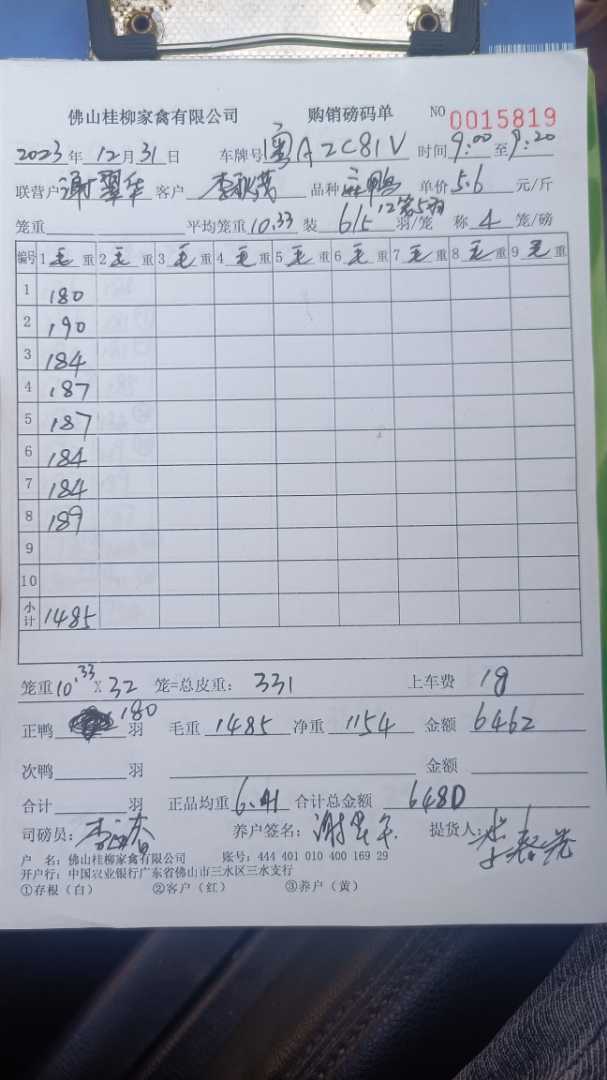 佛山桂柳家禽有限公司 购销磅码单 NO 0015819
2023年12月31日 车牌号 粤AZC81V 时间 9:00 至 9:20
联营户 谢翠华 客户 品种 麻鸭 单价 5.6 元/斤
笼重 平均笼重 10.33 装 6/5 12笼5羽 羽/笼 称 4 笼/磅
编号 1 毛重 2 毛重 3 毛重 4 毛重 5 毛重 6 毛重 7 毛重 8 毛重 9 毛重
1 180
2 190
3 184
4 187
5 187
6 184
7 184
8 189
9
10
小计 1485
笼重 10.33 X 32 笼=总皮重: 331 上车费 18
正鸭 180 羽 毛重 1485 净重 1154 金额 6462
次鸭 羽 金额
合计 羽 正品均重 6.41 合计总金额 6480
司磅员: 养户签名: 提货人:
户 名: 佛山桂柳家禽有限公司 账号: 444 401 010 400 169 29
开户行: 中国农业银行广东省佛山市三水区三水支行
①存根(白) ②客户(红) ③养户(黄)